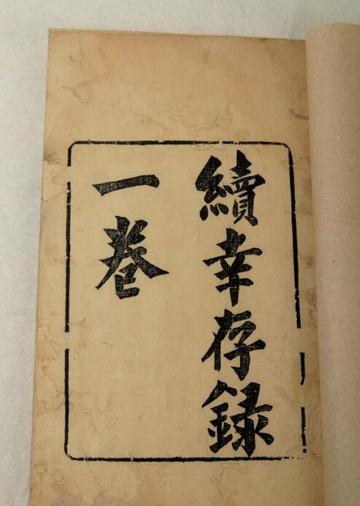 續幸存録
一卷